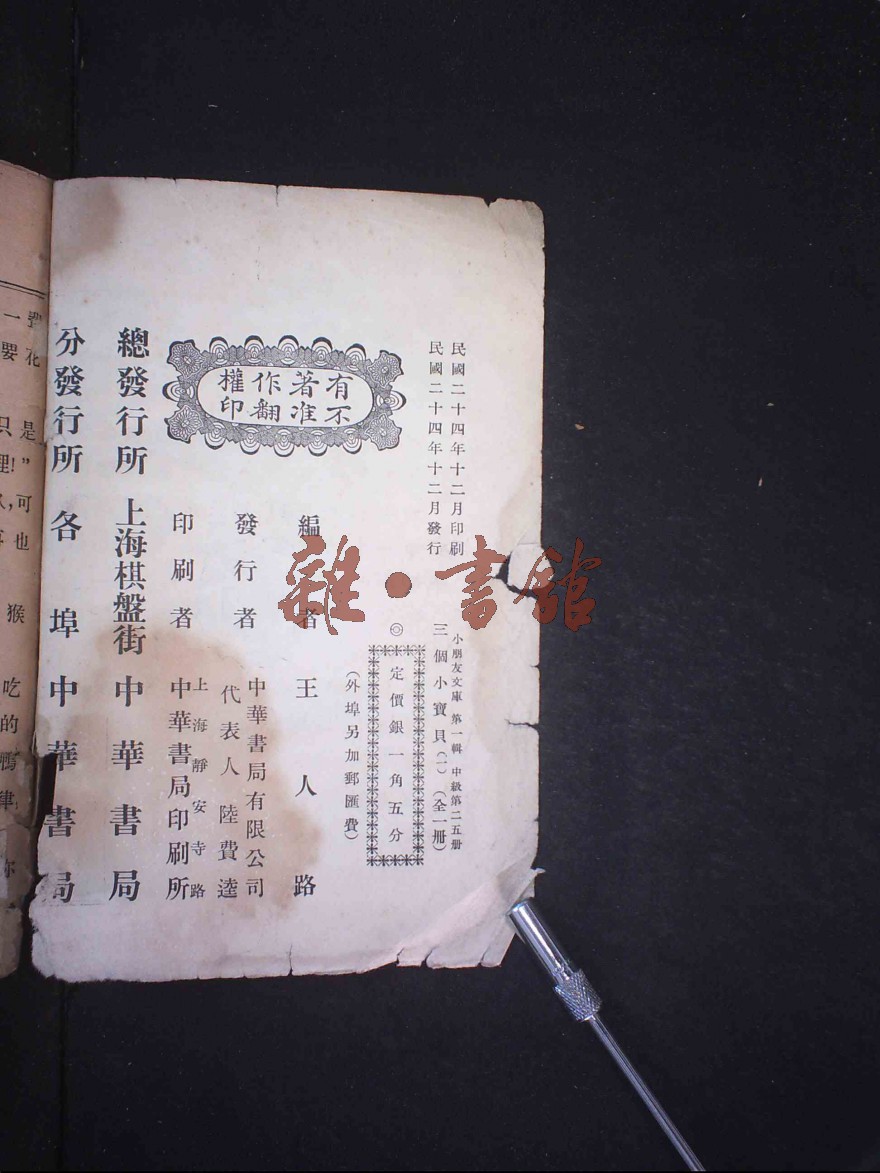 民國二十四年十二月印刷
民國二十四年十二月發行
小朋友文庫 第一輯 中級第二五册
三個小寶貝(一)(全一册)
◎
定價銀一角五分
(外埠另加郵匯費)
有著作權
不准翻印
編者 王人路
發行者 中華書局有限公司
代表人 陸費逵
印刷者 上海靜安寺路
中華書局印刷所
總發行所 上海棋盤街 中華書局
分發行所 各埠 中華書局
雜·書館